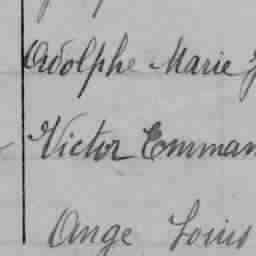 Adolphe Marie
Victor Emman
Ange Louis